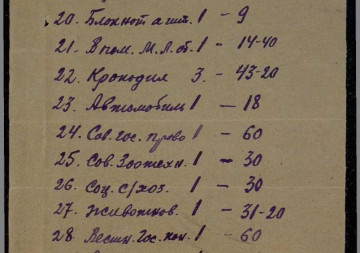 20. Блокнот агит. 1 - 9
21. В пом. М.Л. об. 1 - 14-40
22. Крокодил 3. - 43-20
23. Автомобиль 1 - 18
24. Сов. гос. право 1 - 60
25. Сов. Зоотехн. 1 - 30
26. Соц. С/хоз. 1 - 30
27. Животнов. 1 - 31-20
28. Вестн. Гос. кон. 1 - 60